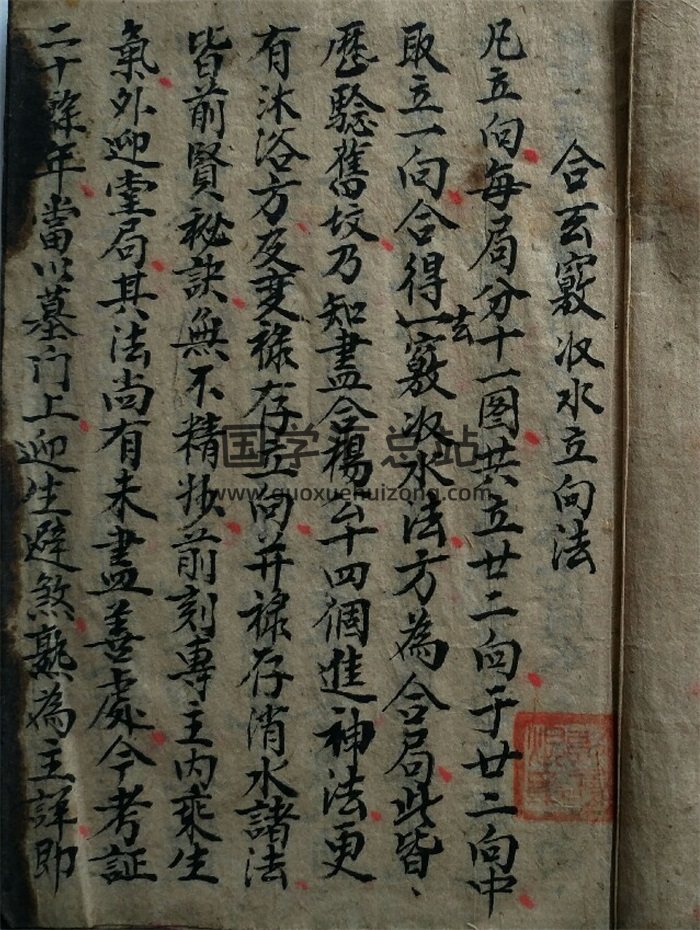 合玄竅收水立向法
凡立向每局分十一图共立廿二向于廿二向中
取立一向合得一玄竅收水法方為合局此皆、
歷驗舊坟乃知盡合楊公十四個進神法更
有沐浴方及变禄存立向并禄存消水諸法
皆前賢秘訣無不精妙前刻專主内乘生
氣外迎堂局其法尚有未盡善處今考証
二十餘年當以墓门上迎生避煞熟為主詳即
国学汇总站
www.guoxuehuizong.com